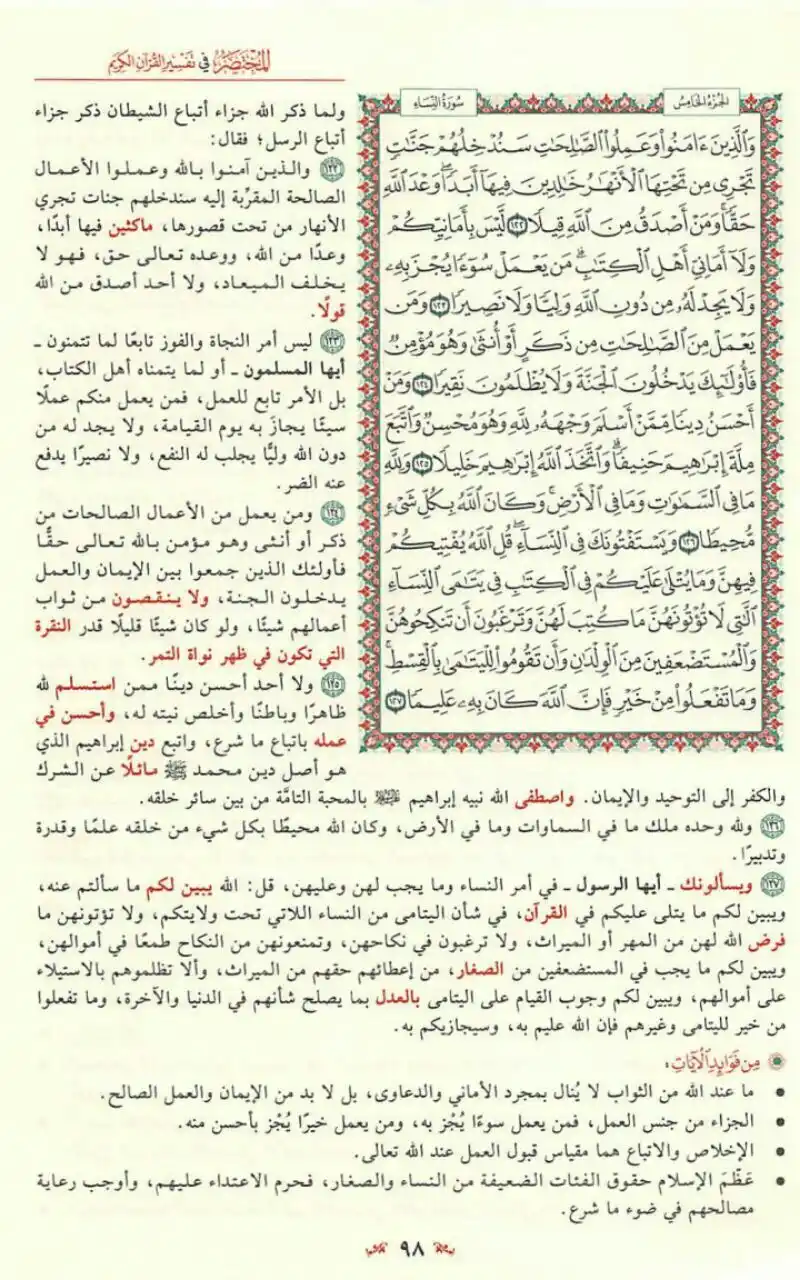 المختصر في تفسير القرآن الكريم
الجزء الخامس
سورة النساء
وَٱلَّذِينَ ءَامَنُوا۟ وَعَمِلُوا۟ ٱلصَّٰلِحَٰتِ سَنُدْخِلُهُمْ جَنَّٰتٍ
تَجْرِى مِن تَحْتِهَا ٱلْأَنْهَٰرُ خَٰلِدِينَ فِيهَآ أَبَدًا ۖ وَعْدَ ٱللَّهِ
حَقًّا ۚ وَمَنْ أَصْدَقُ مِنَ ٱللَّهِ قِيلًا ١٢٢ لَّيْسَ بِأَمَانِيِّكُمْ
وَلَآ أَمَانِىِّ أَهْلِ ٱلْكِتَٰبِ ۗ مَن يَعْمَلْ سُوٓءًا يُجْزَ بِهِۦ
وَلَا يَجِدْ لَهُۥ مِن دُونِ ٱللَّهِ وَلِيًّا وَلَا نَصِيرًا ١٢٣ وَمَن
يَعْمَلْ مِنَ ٱلصَّٰلِحَٰتِ مِن ذَكَرٍ أَوْ أُنثَىٰ وَهُوَ مُؤْمِنٌ
فَأُو۟لَٰٓئِكَ يَدْخُلُونَ ٱلْجَنَّةَ وَلَا يُظْلَمُونَ نَقِيرًا ١٢٤ وَمَنْ
أَحْسَنُ دِينًا مِّمَّنْ أَسْلَمَ وَجْهَهُۥ لِلَّهِ وَهُوَ مُحْسِنٌ وَٱتَّبَعَ
مِلَّةَ إِبْرَٰهِيمَ حَنِيفًا ۗ وَٱتَّخَذَ ٱللَّهُ إِبْرَٰهِيمَ خَلِيلًا ١٢٥ وَلِلَّهِ
مَا فِى ٱلسَّمَٰوَٰتِ وَمَا فِى ٱلْأَرْضِ ۚ وَكَانَ ٱللَّهُ بِكُلِّ شَىْءٍ
مُّحِيطًا ١٢٦ وَيَسْتَفْتُونَكَ فِى ٱلنِّسَآءِ ۖ قُلِ ٱللَّهُ يُفْتِيكُمْ
فِيهِنَّ وَمَا يُتْلَىٰ عَلَيْكُمْ فِى ٱلْكِتَٰبِ فِى يَتَٰمَى ٱلنِّسَآءِ
ٱلَّٰتِى لَا تُؤْتُونَهُنَّ مَا كُتِبَ لَهُنَّ وَتَرْغَبُونَ أَن تَنكِحُوهُنَّ
وَٱلْمُسْتَضْعَفِينَ مِنَ ٱلْوِلْدَٰنِ وَأَن تَقُومُوا۟ لِلْيَتَٰمَىٰ بِٱلْقِسْطِ ۚ
وَمَا تَفْعَلُوا۟ مِنْ خَيْرٍ فَإِنَّ ٱللَّهَ كَانَ بِهِۦ عَلِيمًا ١٢٧
ولما ذكر الله جزاء أتباع الشيطان ذكر جزاء
أتباع الرسل؛ فقال:
١٢٢ والذين آمنوا بالله وعملوا الأعمال
الصالحة المقرِّبة إليه سندخلهم جنات تجري
الأنهار من تحت قصورها، ماكثين فيها أبدًا،
وعدًا من الله، ووعده تعالى حق، فهو لا
يخلف الميعاد، ولا أحد أصدق من الله
قولًا.
١٢٣ ليس أمر النجاة والفوز تابعًا لما تتمنون ـ
أيها المسلمون ـ أو لما يتمناه أهل الكتاب،
بل الأمر تابع للعمل، فمن يعمل منكم عملًا
سيئًا يجازَ به يوم القيامة، ولا يجد له من
دون الله وليًّا يجلب له النفع، ولا نصيرًا يدفع
عنه الضر.
١٢٤ ومن يعمل من الأعمال الصالحات من
ذكر أو أنثى وهو مؤمن بالله تعالى حقًّا
فأولئك الذين جمعوا بين الإيمان والعمل
يدخلون الجنة، ولا ينقصون من ثواب
أعمالهم شيئًا، ولو كان شيئًا قليلًا قدر النقرة
التي تكون في ظهر نواة التمر.
١٢٥ ولا أحد أحسن دينًا ممن استسلم لله
ظاهرًا وباطنًا وأخلص نيته له، وأحسن في
عمله باتباع ما شرع، واتبع دين إبراهيم الذي
هو أصل دين محمد ﷺ مائلًا عن الشرك
والكفر إلى التوحيد والإيمان. واصطفى الله نبيه إبراهيم ﷺ بالمحبة التامَّة من بين سائر خلقه.
١٢٦ ولله وحده ملك ما في السماوات وما في الأرض، وكان الله محيطًا بكل شيء من خلقه علمًا وقدرة
وتدبيرًا.
١٢٧ ويسألونك ـ أيها الرسول ـ في أمر النساء وما يجب لهن وعليهن، قل: الله يبين لكم ما سألتم عنه،
ويبين لكم ما يتلى عليكم في القرآن، في شأن اليتامى من النساء اللاتي تحت ولايتكم، ولا تؤتونهن ما
فرض الله لهن من المهر أو الميراث، ولا ترغبون في نكاحهن، وتمنعونهن من النكاح طمعًا في أموالهن،
ويبين لكم ما يجب في المستضعفين من الصغار، من إعطائهم حقهم من الميراث، وألا تظلموهم بالاستيلاء
على أموالهم، ويبين لكم وجوب القيام على اليتامى بالعدل بما يصلح شأنهم في الدنيا والآخرة، وما تفعلوا
من خير لليتامى وغيرهم فإن الله عليم به، وسيجازيكم به.
من فوائد الآيات:
• ما عند الله من الثواب لا يُنال بمجرد الأماني والدعاوى، بل لا بد من الإيمان والعمل الصالح.
• الجزاء من جنس العمل، فمن يعمل سوءًا يُجْز به، ومن يعمل خيرًا يُجْز بأحسن منه.
• الإخلاص والاتباع هما مقياس قبول العمل عند الله تعالى.
• عَظَّمَ الإسلام حقوق الفئات الضعيفة من النساء والصغار، فحرم الاعتداء عليهم، وأوجب رعاية
مصالحهم في ضوء ما شرع.
٩٨